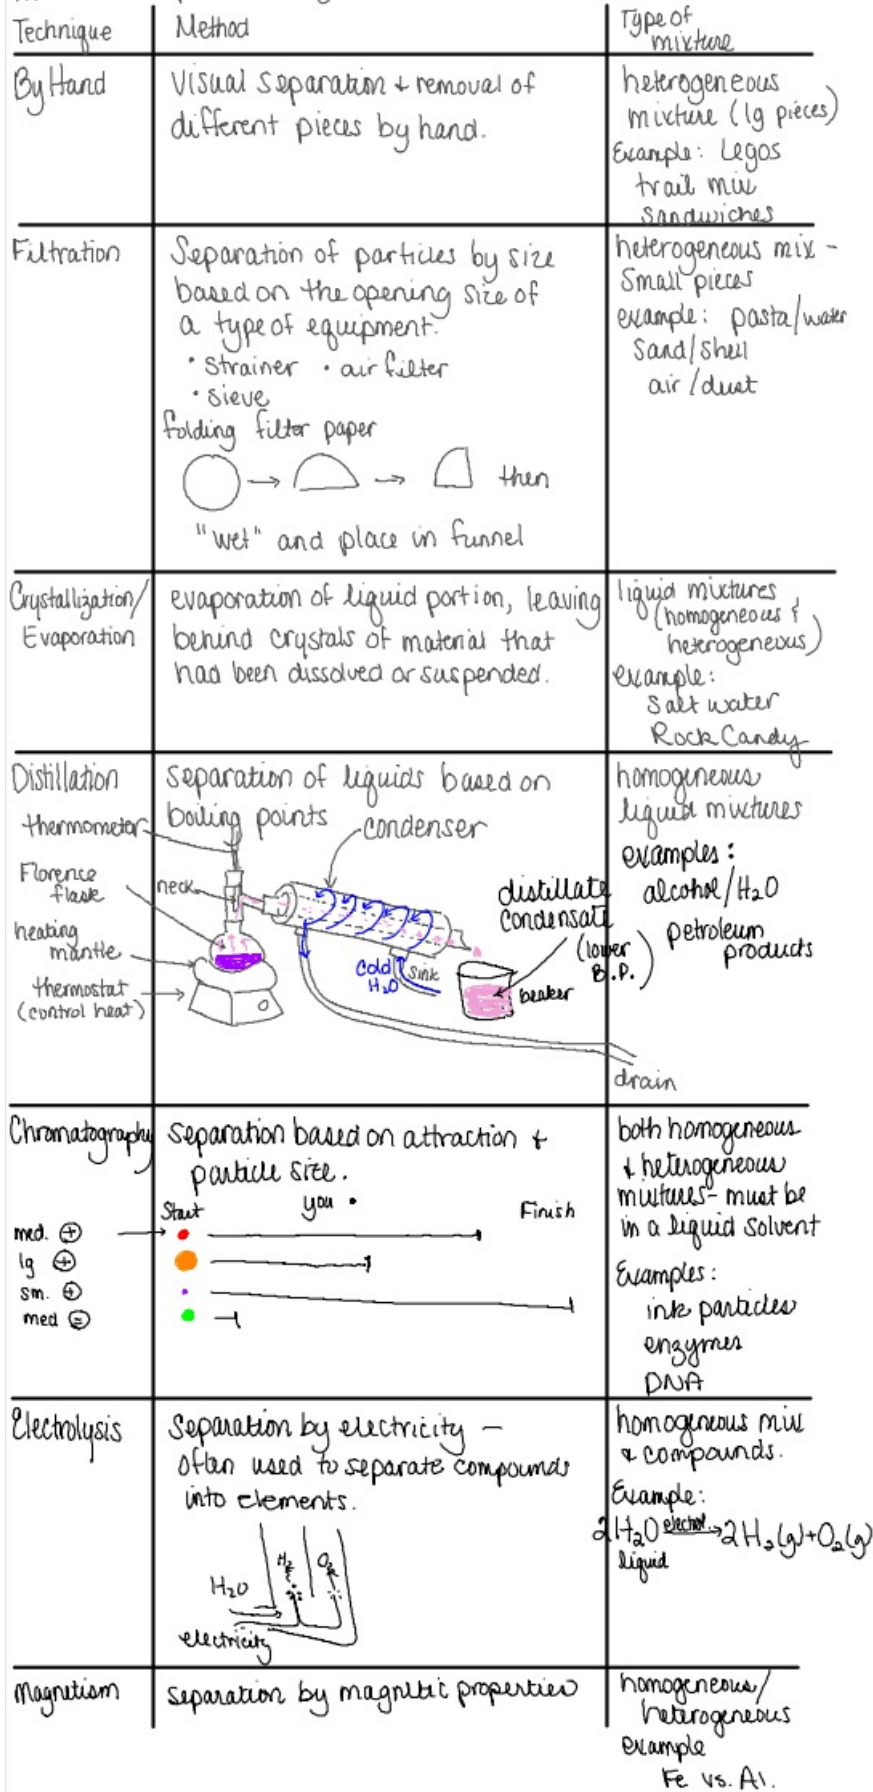 Technique
Method
Type of
mixture
By Hand
Visual separation + removal of
different pieces by hand.
heterogeneous
mixture (lg pieces)
Example: Legos
trail mix
Sandwiches
Filtration
Separation of particles by size
based on the opening size of
a type of equipment.
• strainer • air filter
• sieve
folding filter paper
then
"wet" and place in funnel
heterogeneous mix -
Small pieces
example: pasta/water
Sand/Shell
air/dust
Crystallization/
Evaporation
evaporation of liquid portion, leaving
behind crystals of material that
had been dissolved or suspended.
liquid mixtures
(homogeneous &
heterogeneous)
example:
Salt water
Rock Candy
Distillation
Separation of liquids based on
boiling points
thermometer
condenser
Florence
flask
neck
heating
mantle
thermostat
(control heat)
Cold
H₂O
sink
distillate
condensate
(lower
B.P.)
beaker
drain
homogeneous
liquid mixtures
examples:
alcohol/H₂O
petroleum
products
Chromatography
Separation based on attraction +
particle size.
Start
you •
Finish
med. ⊕
lg ⊕
sm. ⊕
med ⊖
both homogeneous
+ heterogeneous
mixtures - must be
in a liquid solvent
Examples:
ink particles
enzymes
DNA
Electrolysis
Separation by electricity -
often used to separate compounds
into elements.
H₂
O₂
H₂O
electricity
homogeneous mix
& compounds.
Example:
2H₂O electrol. → 2H₂(g) + O₂(g)
liquid
Magnetism
Separation by magnetic properties
homogeneous/
heterogeneous
example
Fe vs. Al.